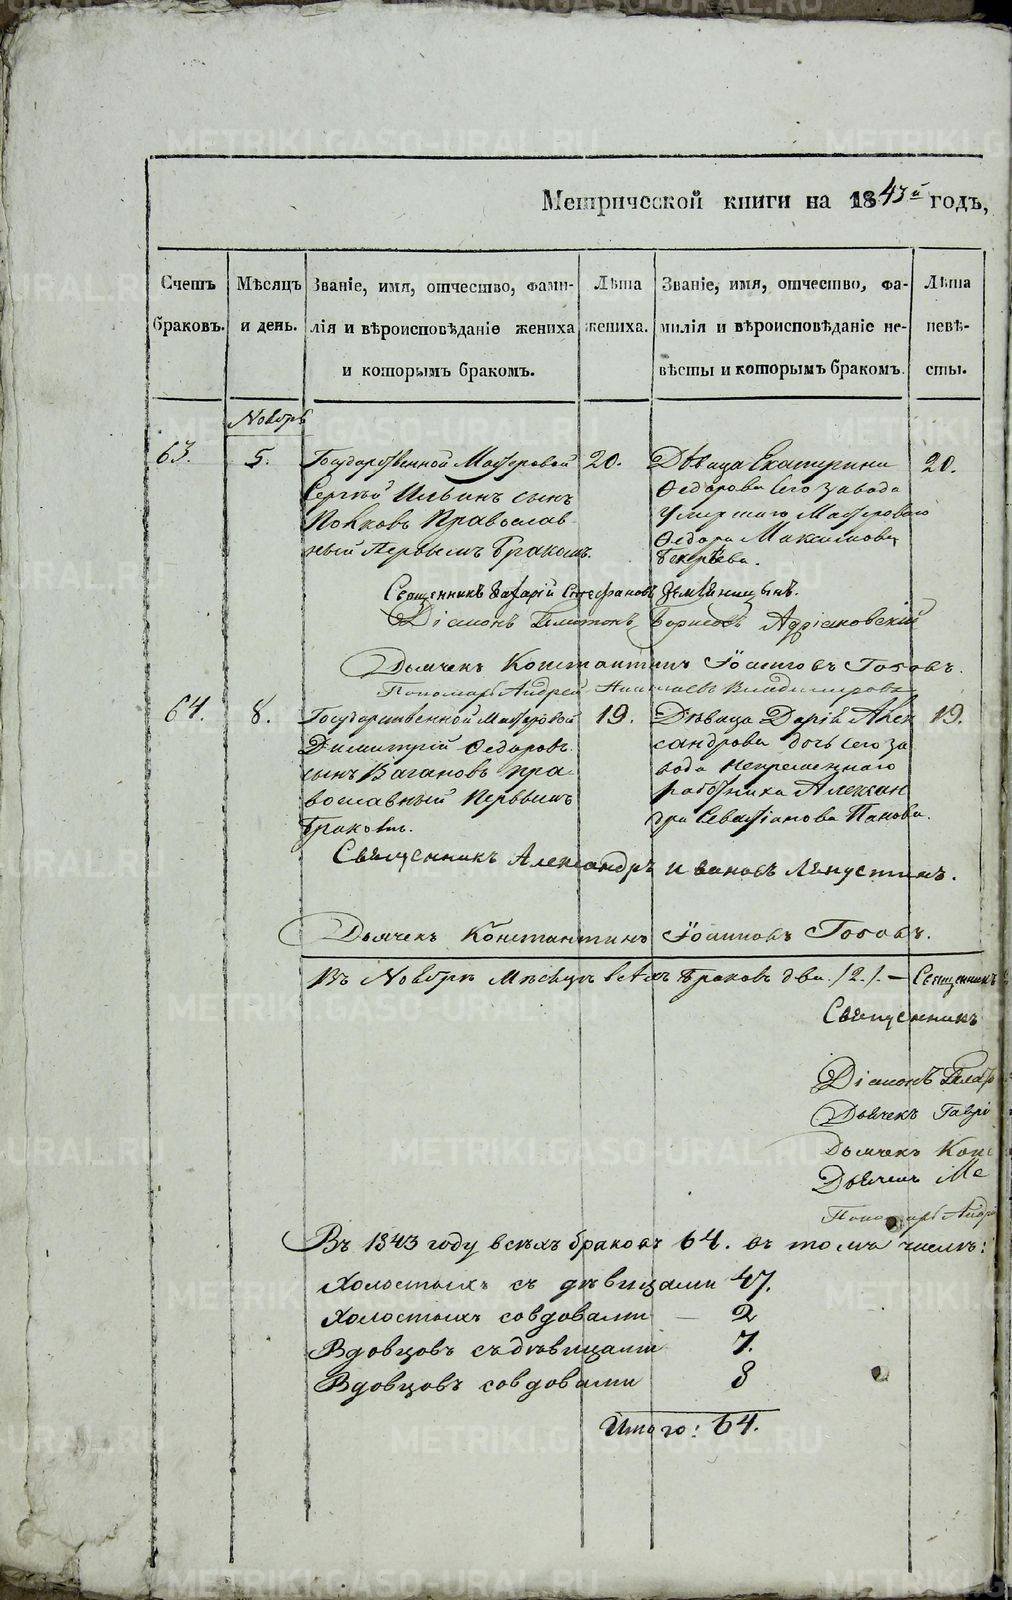 Метрической книги на 1843й годъ,
Счетъ браковъ.
Мѣсяцъ и день.
Званіе, имя, отчество, фами-
лія и вѣроисповѣданіе жениха
и которымъ бракомъ.
Лѣта жениха.
Званіе, имя, отчество, фа-
милія и вѣроисповѣданіе не-
вѣсты и которымъ бракомъ.
Лѣта невѣ-
сты.
Ноябрь
63.
5.
Государственной Мастеровой
Сергѣй Ильинъ сынъ
Православ
ный Первымъ бракомъ.
20.
Дѣвица Екатерина
Федорова сего завода
умершаго Мастероваго
Федора Максимова
20.
Священникъ Захарій Стефановъ Земляницынъ.
Діаконъ Платонъ Борисовъ Адріановскій
Дьячекъ Константинъ Іоанновъ Топовъ.
Пономарь Андрей Владимировъ
64.
8.
Государственной Мастеровой
Димитрій Федоровъ
сынъ Вагановъ пра
вославный Первымъ
бракомъ.
19.
Дѣвица Дарія Алек
сандрова дочь сего за
вода непремѣннаго
работника Алексан
дра Севастіанова Панова.
19.
Священникъ Александръ Ивановъ Лапустинъ.
Дьячекъ Константинъ Іоанновъ Топовъ.
Въ Ноябрѣ Мѣсяцѣ всѣхъ браковъ два /2/. — Священникъ
Священникъ
Діаконъ Плат
Дьячекъ Гаврі
Дьячекъ Конс
Дьячекъ Ме
Пономарь Андр
Въ 1843 году всѣхъ браковъ 64. въ томъ числѣ:
Холостыхъ съ дѣвицами 47.
Холостыхъ совдовами — 2
Вдовцовъ съ дѣвицами 7.
Вдовцовъ совдовами 8
Итого: 64.
METRIKI.GASO-URAL.RU